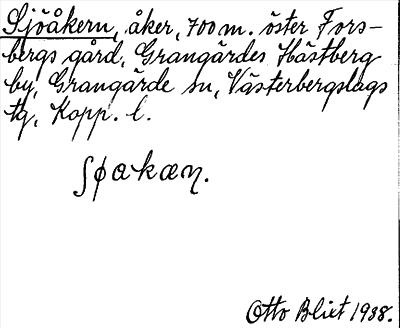 Sjöåkern, åker, 700 m. öster Fors-
bergs gård, Grangärdes Hästberg
by, Grangärde sn, Västerbergslags
tg, Kopp. l.
ʃøakæɳ.
Otto Blixt 1938.